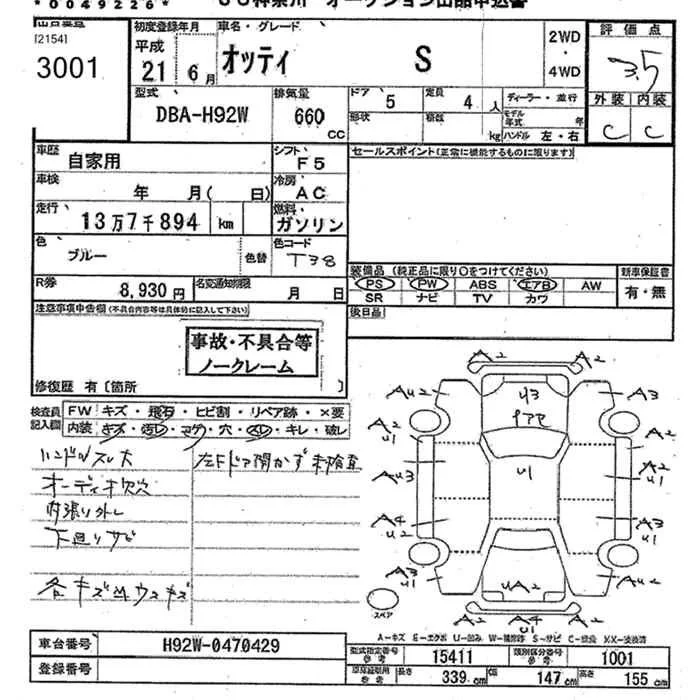 *0049226*
オークション出品申込書
[2154]
3001
初度登録年月
平成
21 6月
車名・グレード
オッティ S
2WD
・
4WD
評価点
3.5
外装 内装
C C
型式
DBA-H92W
排気量
660
CC
ドア 5
定員 4 人
形状
積数 kg
ディーラー・並行
モデル年式 年
ハンドル 左・右
車歴 自家用
シフト F5
セールスポイント(正常に機能するものに限ります)
車検 年 月( 日)
冷房 AC
走行 13万7千894 km
燃料 ガソリン
色 ブルー 色替
色コード T38
装備品 (純正品に限り○をつけてください)
新車保証書
PS PW ABS エアB AW
有・無
SR ナビ TV カワ
R券 8,930円
名変通知期限 月 日
後日品
注意事項申告欄(不具合内容等は具体的に記入して下さい)
事故・不具合等
ノークレーム
修復歴 有〔箇所 〕
検査員
記入欄
FW キズ・飛石・ヒビ割・リペア跡・×要
内装 キズ・汚レ・コゲ・穴・スレ・キレ・破レ
ハンドルスレ大
左Fドア開かず未検査
オーディオ欠穴
内張り外し
下廻りサビ
各キズ凹ウスキズ
A2 A2
AU2 A3
U3
A2
U1
A2
U1
AU3
U1
A4
U2
A3
U1
A3
U1
AU2
UA2
A2 A4 A2
U1
スペア
A-キズ E-エクボ U-凹み W-補修跡 S-サビ C-腐食 XX-交換済
車台番号 H92W-0470429
登録番号
型式指定番号
参考
15411
類別区分番号
参考
1001
長さ 339 cm
幅 147 cm
高さ 155 cm